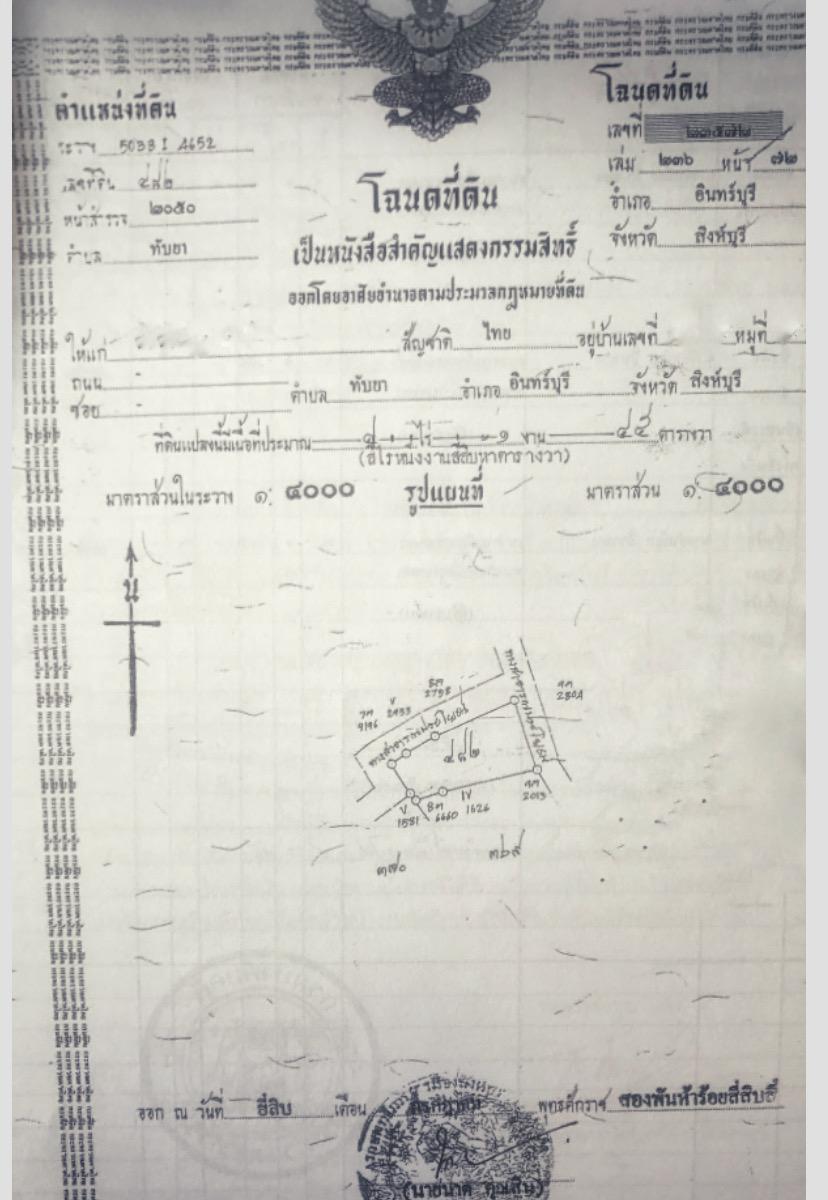 ตำแหน่งที่ดิน
ระวาง 5038 I 4652
เลขที่ดิน ๔๘๒
หน้าสำรวจ ๒๐๕๐
ตำบล ทับยา
โฉนดที่ดิน
เลขที่
เล่ม ๒๓๖ หน้า ๗๒
อำเภอ อินทร์บุรี
จังหวัด สิงห์บุรี
โฉนดที่ดิน
เป็นหนังสือสำคัญแสดงกรรมสิทธิ์
ออกโดยอาศัยอำนาจตามประมวลกฎหมายที่ดิน
ให้แก่ สัญชาติ ไทย อยู่บ้านเลขที่ หมู่ที่
ถนน - ตำบล ทับยา อำเภอ อินทร์บุรี จังหวัด สิงห์บุรี
ซอย -
ที่ดินแปลงนี้มีเนื้อที่ประมาณ ๔ ไร่ ๑ งาน ๔๕ ตารางวา
(สี่ไร่หนึ่งงานสี่สิบห้าตารางวา)
มาตราส่วนในระวาง ๑: ๔๐๐๐ รูปแผนที่ มาตราส่วน ๑: ๔๐๐๐
น
2798
2933
9196
2804
ทางสาธารณประโยชน์
ทางสาธารณประโยชน์
๔๘๒
2013
V
1581
6660
IV
1626
๓๖๙
๓๗๐
ออก ณ วันที่ ยี่สิบ เดือน พุทธศักราช สองพันห้าร้อยสี่สิบสี่